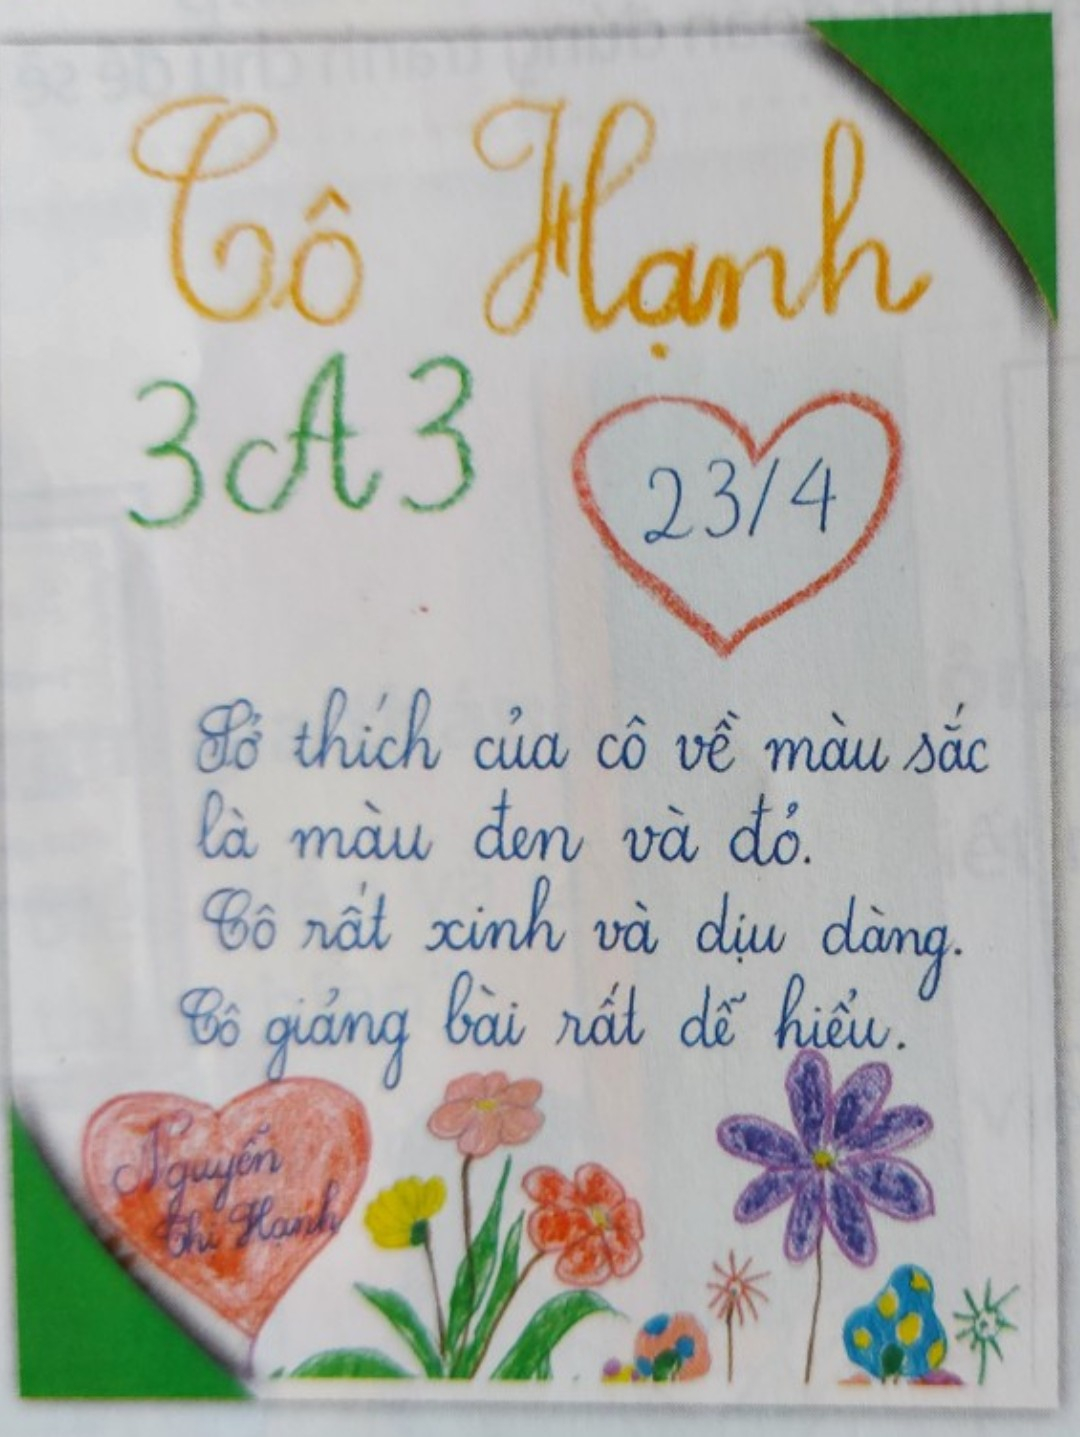 Cô Hạnh
3A3
23/4
Sở thích của cô về màu sắc
là màu đen và đỏ.
Cô rất xinh và dịu dàng.
Cô giảng bài rất dễ hiểu.
Nguyễn
Thị Hạnh